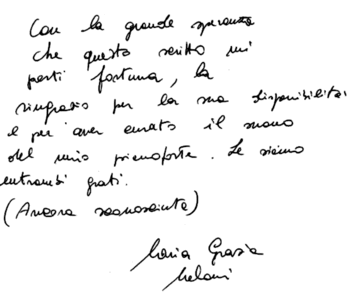 Con la grande speranza
che questo scritto mi
porti fortuna, la
ringrazio per la sua disponibilità
e per aver curato il suono
del mio pianoforte. Le siamo
entrambi grati.
(Ancora sconosciuta)
Maria Grazia
Melani